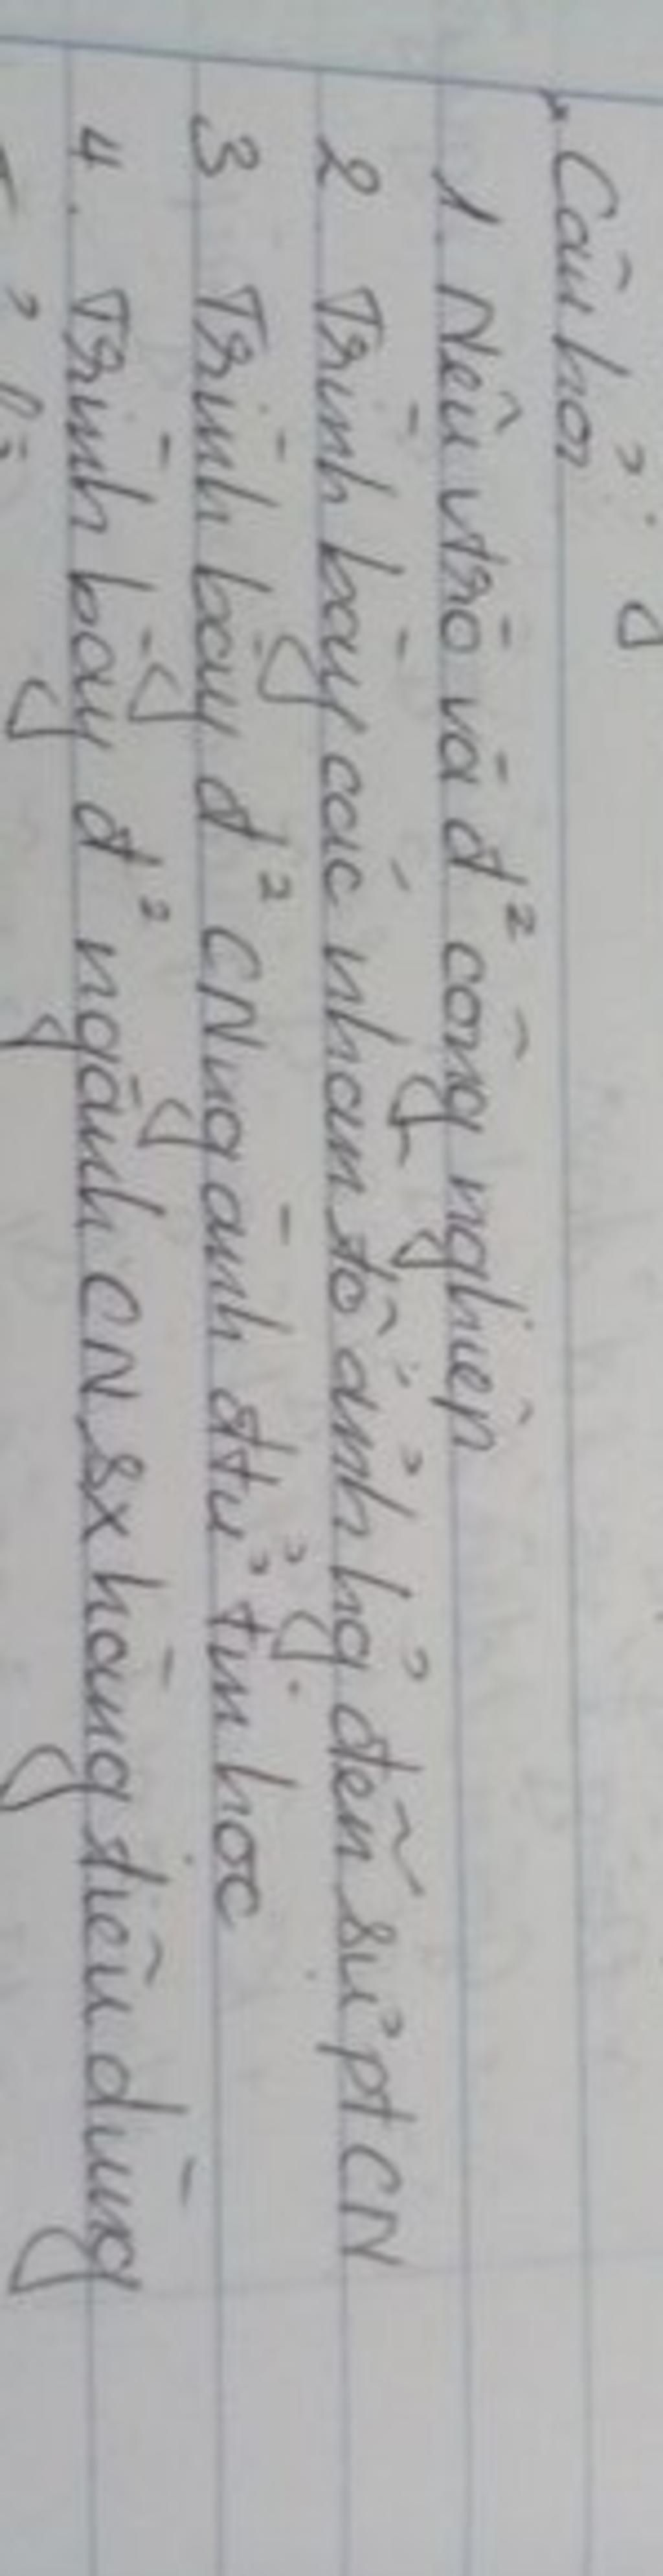 * Câu hỏi
1. Nêu vtrò và đ² công nghiệp
2 Trình bày các nhân tố ảnh hg đến sự pt CN
3 Trình bày đ² CN ngành đtử tin học
4. Trình bày đ² ngành CN sx hàng tiêu dùng